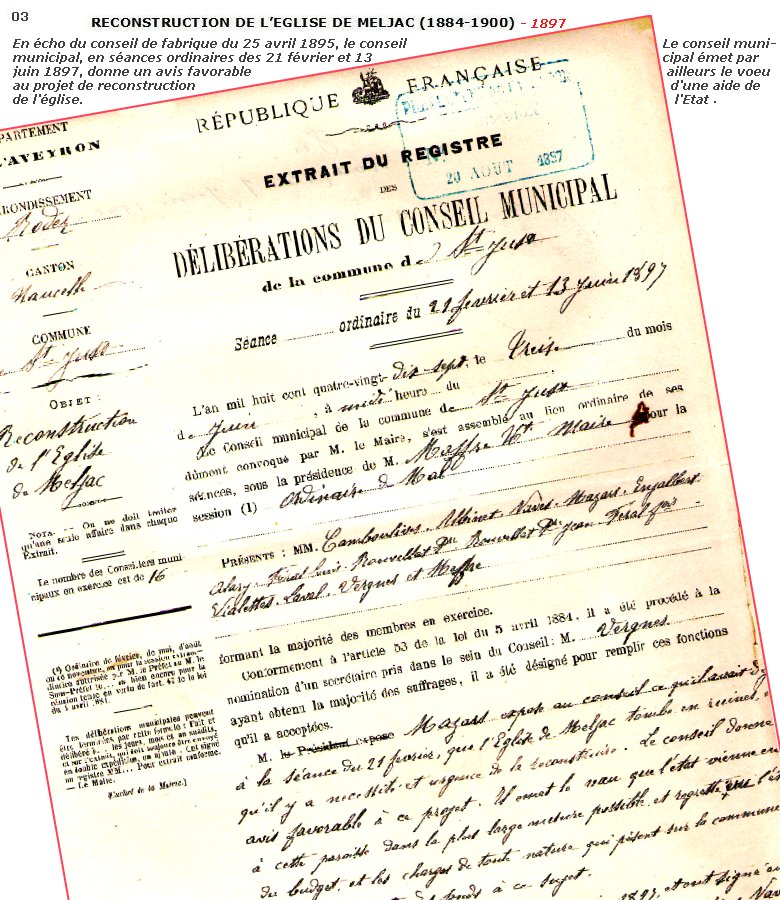 03
RECONSTRUCTION DE L'EGLISE DE MELJAC (1884-1900) - 1897
En écho du conseil de fabrique du 25 avril 1895, le conseil
municipal, en séances ordinaires des 21 février et 13
juin 1897, donne un avis favorable
au projet de reconstruction
de l'église.
Le conseil muni-
cipal émet par
ailleurs le voeu
d'une aide de
l'Etat .
PARTEMENT
L'AVEYRON
RONDISSEMENT
Rodez
CANTON
Naucelle
COMMUNE
St Just
OBJET :
Reconstruction
de l'Eglise
de Meljac
NOTA. — On ne doit traiter
qu'une seule affaire dans chaque
Extrait.
Le nombre des Conseillers muni-
nipaux en exercice est de 16
(1) Ordinaire de février, de mai, d'août
ou de novembre, ou pour la session extraor-
dinaire autorisée par M. le Préfet ou M. le
Sous-Préfet le... ou bien encore pour la
réunion tenue en vertu de l'art. 47 de la loi
du 5 avril 1884.
Les délibérations municipales peuvent
être terminées par cette formule : Fait et
délibéré à... les jours, mois et an susdits,
et sur l'extrait, qui doit toujours être envoyé
en double expédition, on ajoute : Ont signé
au registre MM... Pour extrait conforme.
— Le Maire.
[Cachet de la Mairie.]
RÉPUBLIQUE FRANÇAISE
20 AOUT 1897
EXTRAIT DU REGISTRE
DES
DÉLIBÉRATIONS DU CONSEIL MUNICIPAL
de la commune de St Just
Séance ordinaire du 21 fevrier et 13 juin 1897
L'an mil huit cent quatre-vingt-dix-sept, le treize du mois
de Juin, à midi heure du
Le Conseil municipal de la commune de St Just
dûment convoqué par M. le Maire, s'est assemblé au lieu ordinaire de ses
séances, sous la présidence de M. Maffre Maire pour la
session (1) Ordinaire de Mai
PRÉSENTS : MM. Camboulives, Albinet, Naves, Mazars, Enjalbert
Alary, Féral Louis, Rouvellat Rouvellat Jean Féral
Vialettes, Laval, Vergnes et Maffre
formant la majorité des membres en exercice.
Conformement à l'article 53 de la loi du 5 avril 1884, il a été procédé à la
nomination d'un secrétaire pris dans le sein du Conseil: M. Vergnes
ayant obtenu la majorité des suffrages, il a été désigné pour remplir ces fonctions
qu'il a acceptées.
M. le Président expose Mazars expose au conseil ce qu'il avait dit
à la séance du 21 fevrier, que l'Eglise de Meljac tombe en ruines, et
qu'il y a necessité et urgence de la reconstruire. Le conseil donne
avis favorable à ce projet. Il emet le vœu que l'état vienne en
à cette paroisse dans la plus large mesure possible et regrette que l'é
du budget, et les charges de toute nature qui pèsent sur la commune
fonds à ce sujet.
1897, et ont signé